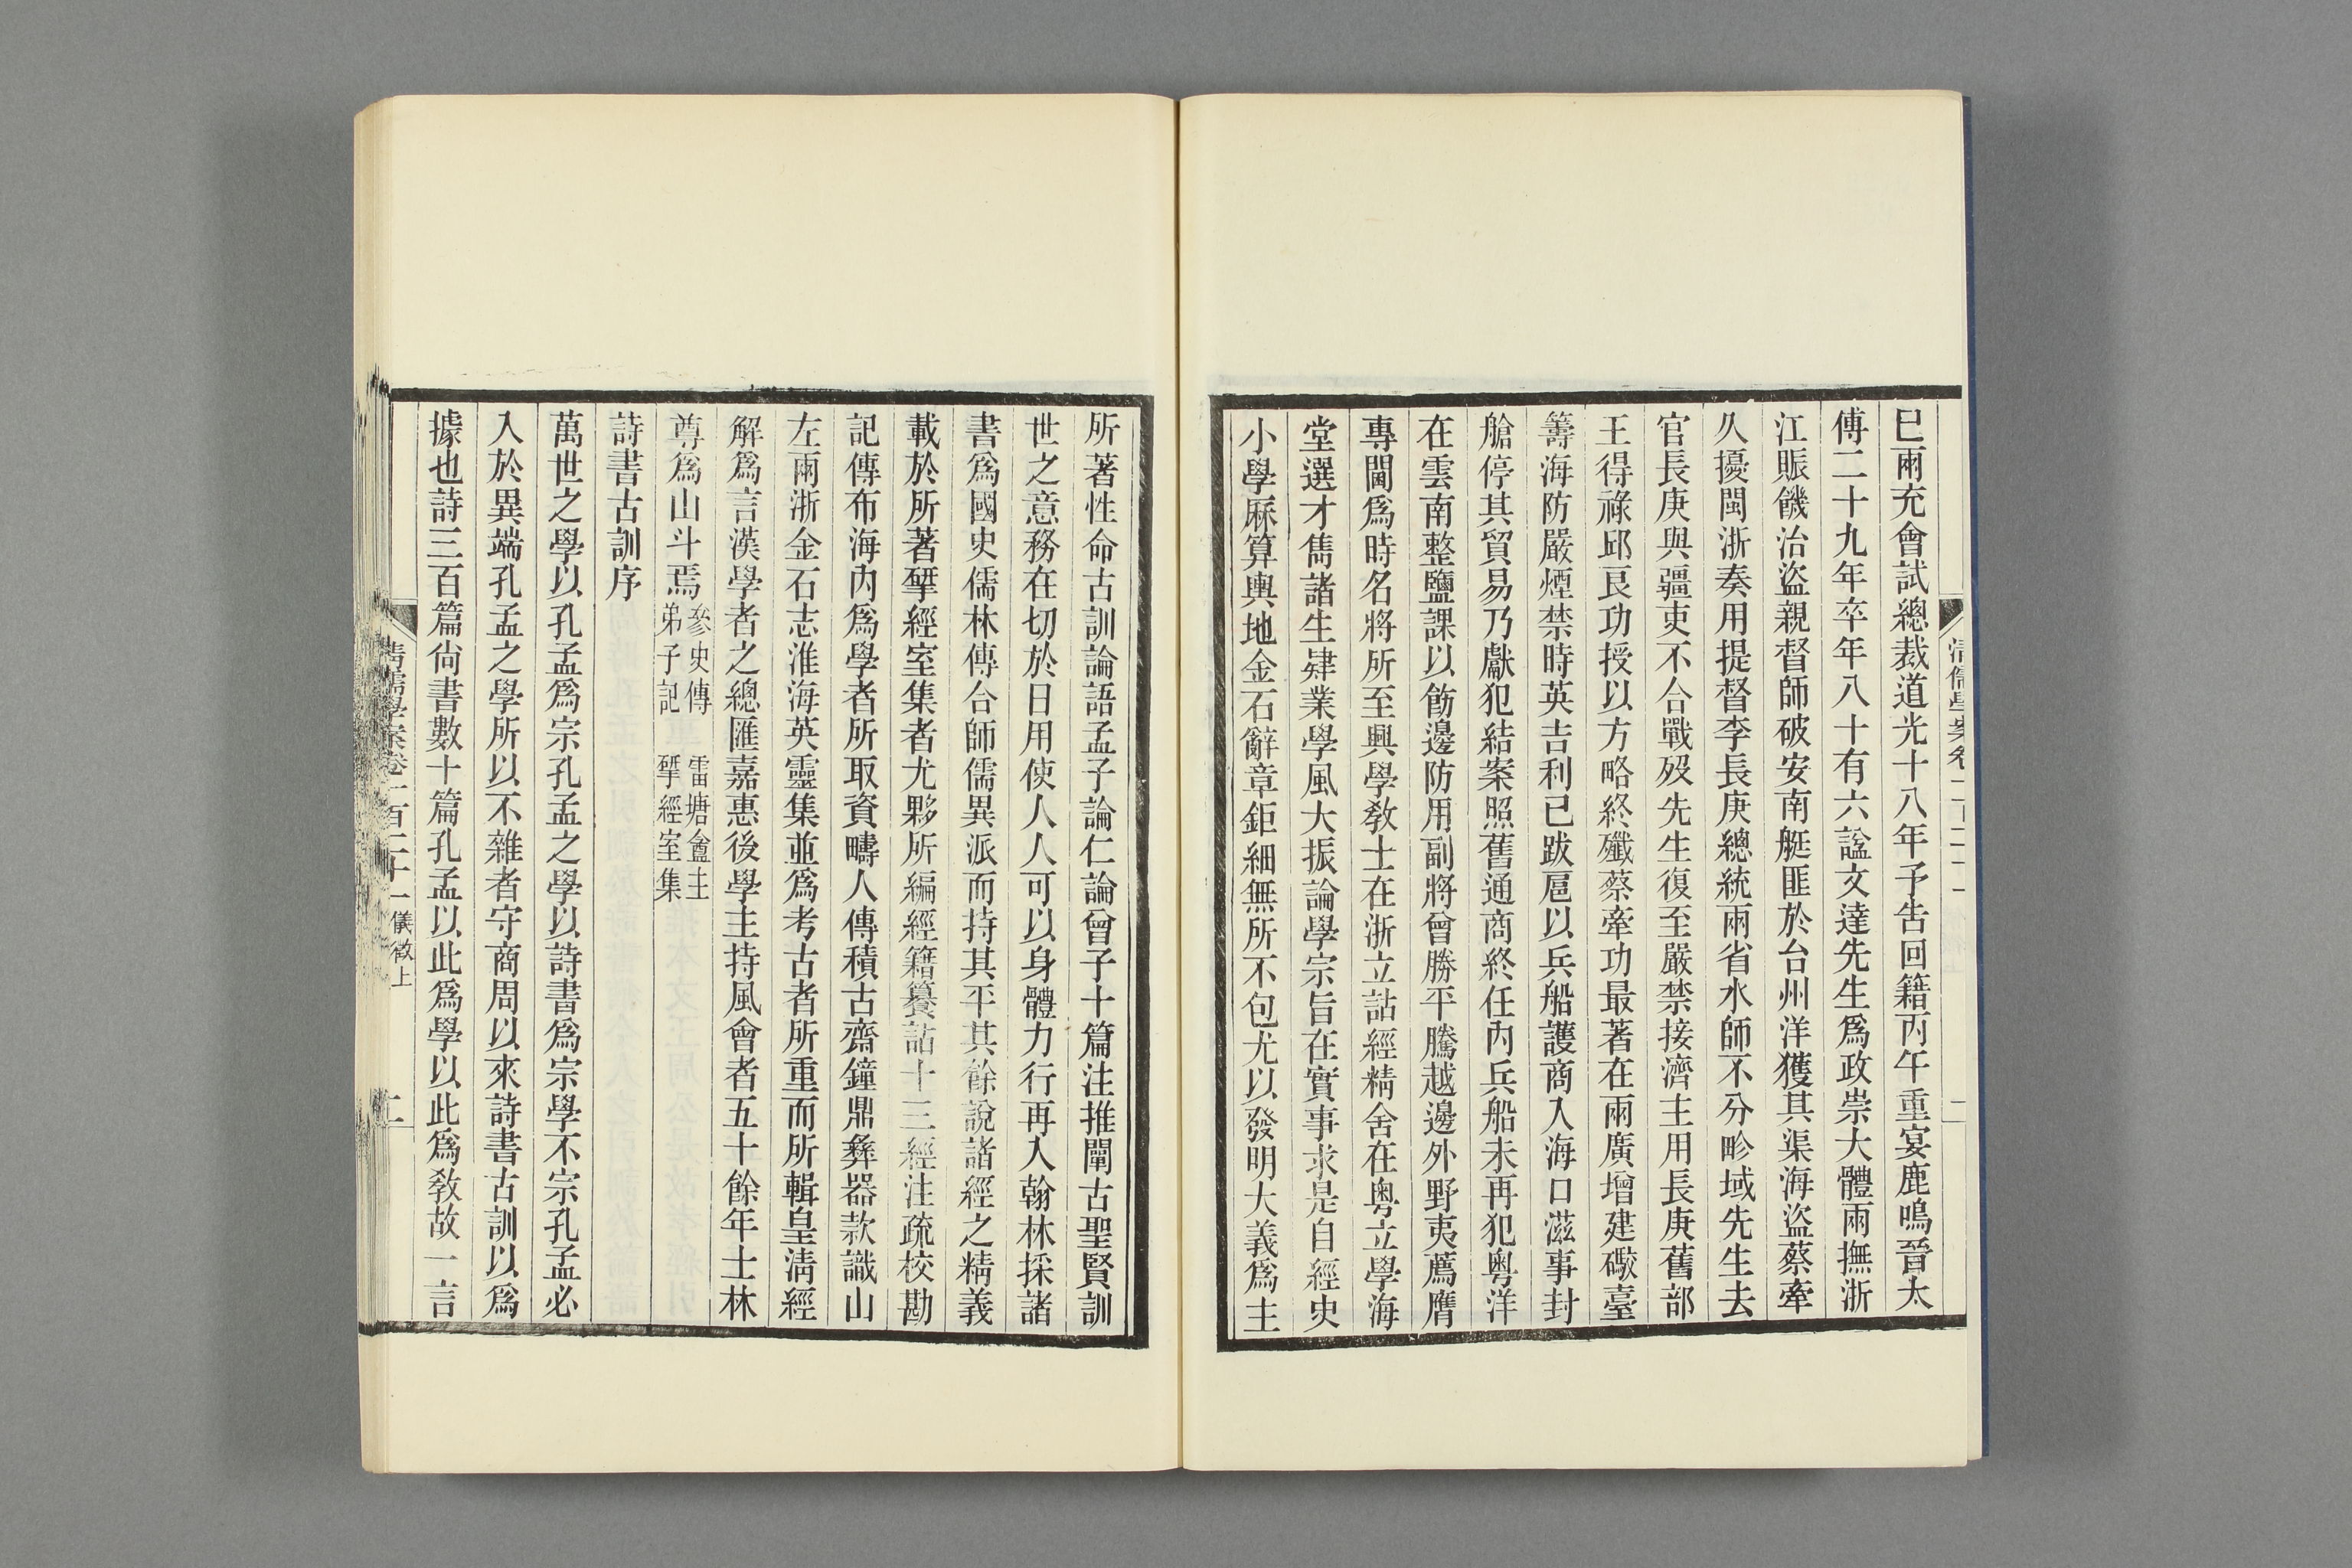 巳兩充會試總裁道光十八年予告回籍丙午重宴鹿鳴晉太
傅二十九年卒年八十有六諡文達先生爲政崇大體兩撫浙
江賑饑治盜親督師破安南艇匪於台州洋獲其渠海盜蔡牽
久擾閩浙奏用提督李長庚總統兩省水師不分畛域先生去
官長庚與疆吏不合戰歿先生復至嚴禁接濟主用長庚舊部
王得祿邱艮功授以方略終殲蔡牽功最著在兩廣增建礮臺
籌海防嚴煙禁時英吉利已跋扈以兵船護商入海口滋事封
艙停其貿易乃獻犯結案照舊通商終任內兵船未再犯粵洋
在雲南整鹽課以餉邊防用副將曾勝平騰越邊外野夷薦膺
專閫爲時名將所至興學敎士在浙立詁經精舍在粵立學海
堂選才雋諸生肄業學風大振論學宗旨在實事求是自經史
小學厤算輿地金石辭章鉅細無所不包尤以發明大義爲主
所著性命古訓論語孟子論仁論曾子十篇注推闡古聖賢訓
世之意務在切於日用使人人可以身體力行再入翰林採諸
書爲國史儒林傳合師儒異派而持其平其餘說諸經之精義
載於所著揅經室集者尤夥所編經籍籑詁十三經注疏校勘
記傳布海內爲學者所取資疇人傳積古齋鐘鼎彝器款識山
左兩浙金石志淮海英靈集並爲考古者所重而所輯皇淸經
解爲言漢學者之總匯嘉惠後學主持風會者五十餘年士林
尊爲山斗焉參史傳 雷塘盦主
弟子記 揅經室集
詩書古訓序
萬世之學以孔孟爲宗孔孟之學以詩書爲宗學不宗孔孟必
入於異端孔孟之學所以不雜者守商周以來詩書古訓以爲
據也詩三百篇尙書數十篇孔孟以此爲學以此爲敎故一言
淸儒學案卷一百二十一 儀徵上 二